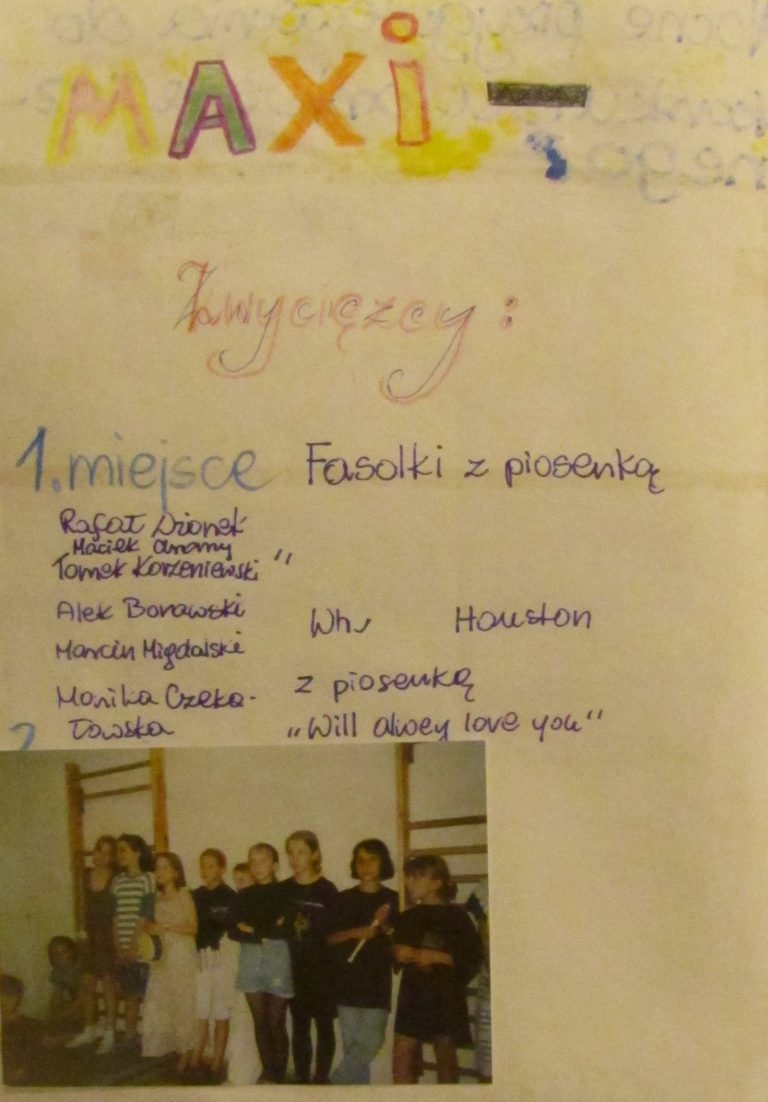 MAXi -
Zwycięzcy :
1. miejsce Fasolki z piosenką
Rafał Dionek
Maciek
Tomek Korzeniewski "
Alek Borawski
Wh Houston
Marcin Migdalski
z piosenką
Monika Czeka-
łowska
"Will alwey love you"
2